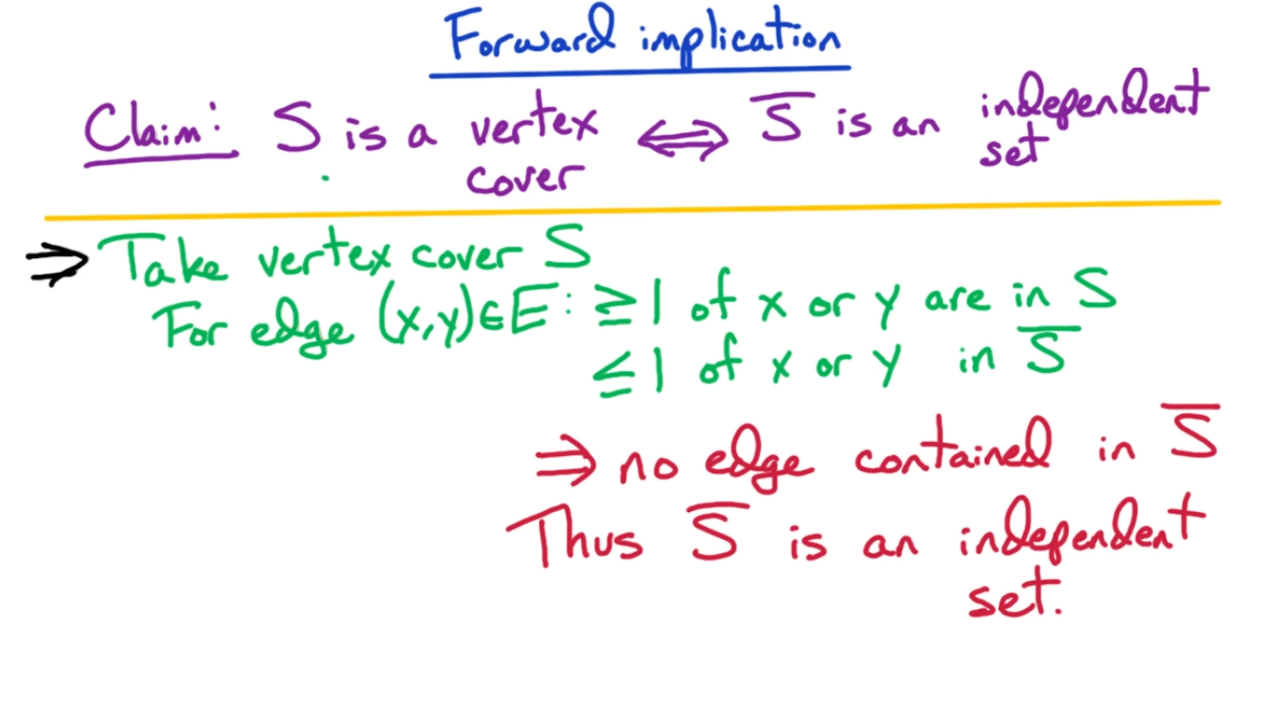 Forward implication
Claim: S is a vertex cover ⟺ S̅ is an independent set
⇒ Take vertex cover S
For edge (x,y)∈E: ≥1 of x or y are in S
≤1 of x or y in S̅
⇒ no edge contained in S̅
Thus S̅ is an independent
set.